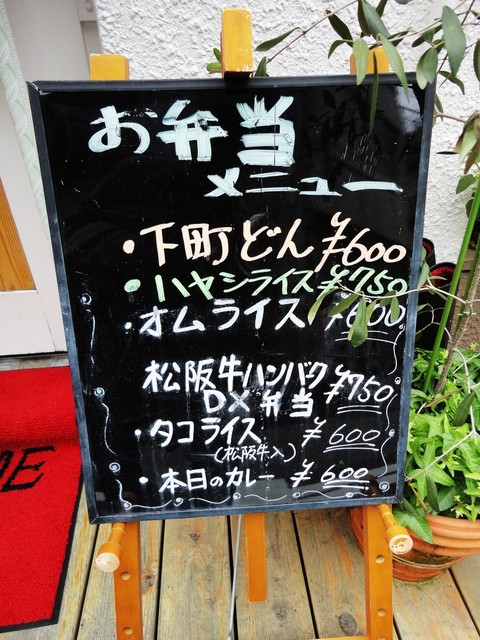 お弁当
メニュー
・下町どん ¥600
・ハヤシライス ¥750
・オムライス ¥600
松阪牛ハンバーグ ¥750
DX弁当
・タコライス ¥600
(松阪牛入)
・本日のカレー ¥600
ME